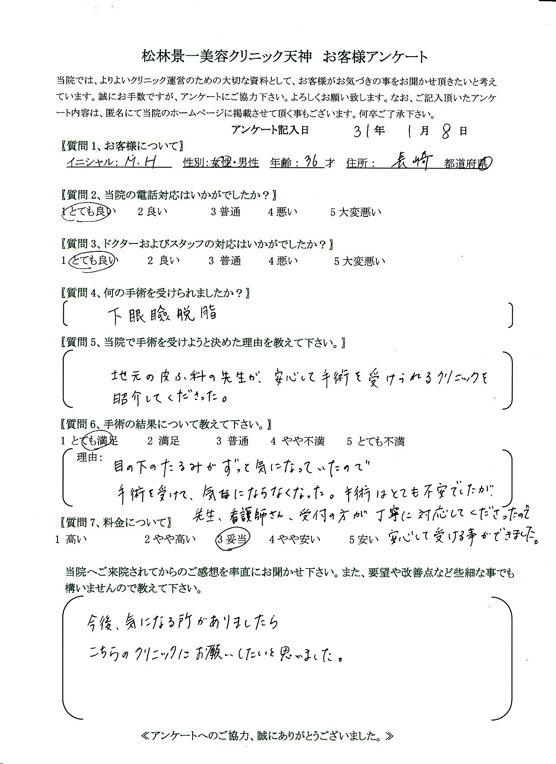 松林景一美容クリニック天神　お客様アンケート
当院では、よりよいクリニック運営のための大切な資料として、お客様がお気づきの事をお聞かせ頂きたいと考え
ています。誠にお手数ですが、アンケートにご協力下さい。よろしくお願い致します。なお、ご記入頂いたアンケ
ート内容は、匿名にて当院のホームページに掲載させて頂く事もございます。何卒ご了承下さい。
アンケート記入日　31年　1月　8日
〖質問 1、お客様について〗
イニシャル：M.H　性別：女性・男性　年齢：36才　住所：長崎　都道府県
〖質問 2、当院の電話対応はいかがでしたか？〗
1 とても良い　2 良い　3 普通　4 悪い　5 大変悪い
〖質問 3、ドクターおよびスタッフの対応はいかがでしたか？〗
1 とても良い　2 良い　3 普通　4 悪い　5 大変悪い
〖質問 4、何の手術を受けられましたか？〗
下眼瞼脱脂
〖質問 5、当院で手術を受けようと決めた理由を教えて下さい。〗
地元の皮ふ科の先生が、安心して手術を受けられるクリニックを
紹介してくださった。
〖質問 6、手術の結果について教えて下さい。〗
1 とても満足　2 満足　3 普通　4 やや不満　5 とても不満
理由：
目の下のたるみがずっと気になっていたので
手術を受けて、気にならなくなった。手術はとても不安でしたが
先生、看護師さん、受付の方が丁寧に対応してくださったので
安心して受ける事ができました。
〖質問 7、料金について〗
1 高い　2 やや高い　3 妥当　4 やや安い　5 安い
当院へご来院されてからのご感想を率直にお聞かせ下さい。また、要望や改善点など些細な事でも
構いませんので教えて下さい。
今後、気になる所がありましたら
こちらのクリニックにお願いしたいと思いました。
≪アンケートへのご協力、誠にありがとうございました。≫